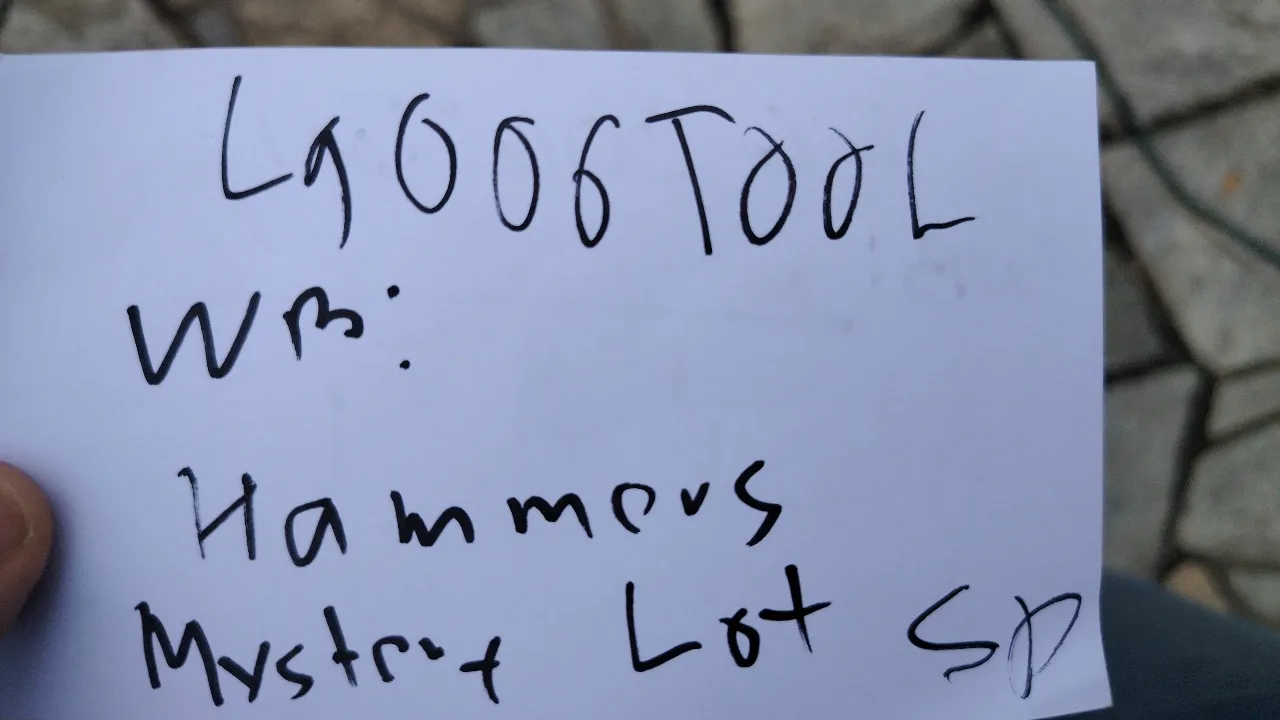 L9006TOOL
WB:
Hammers
Mystery Lot SP